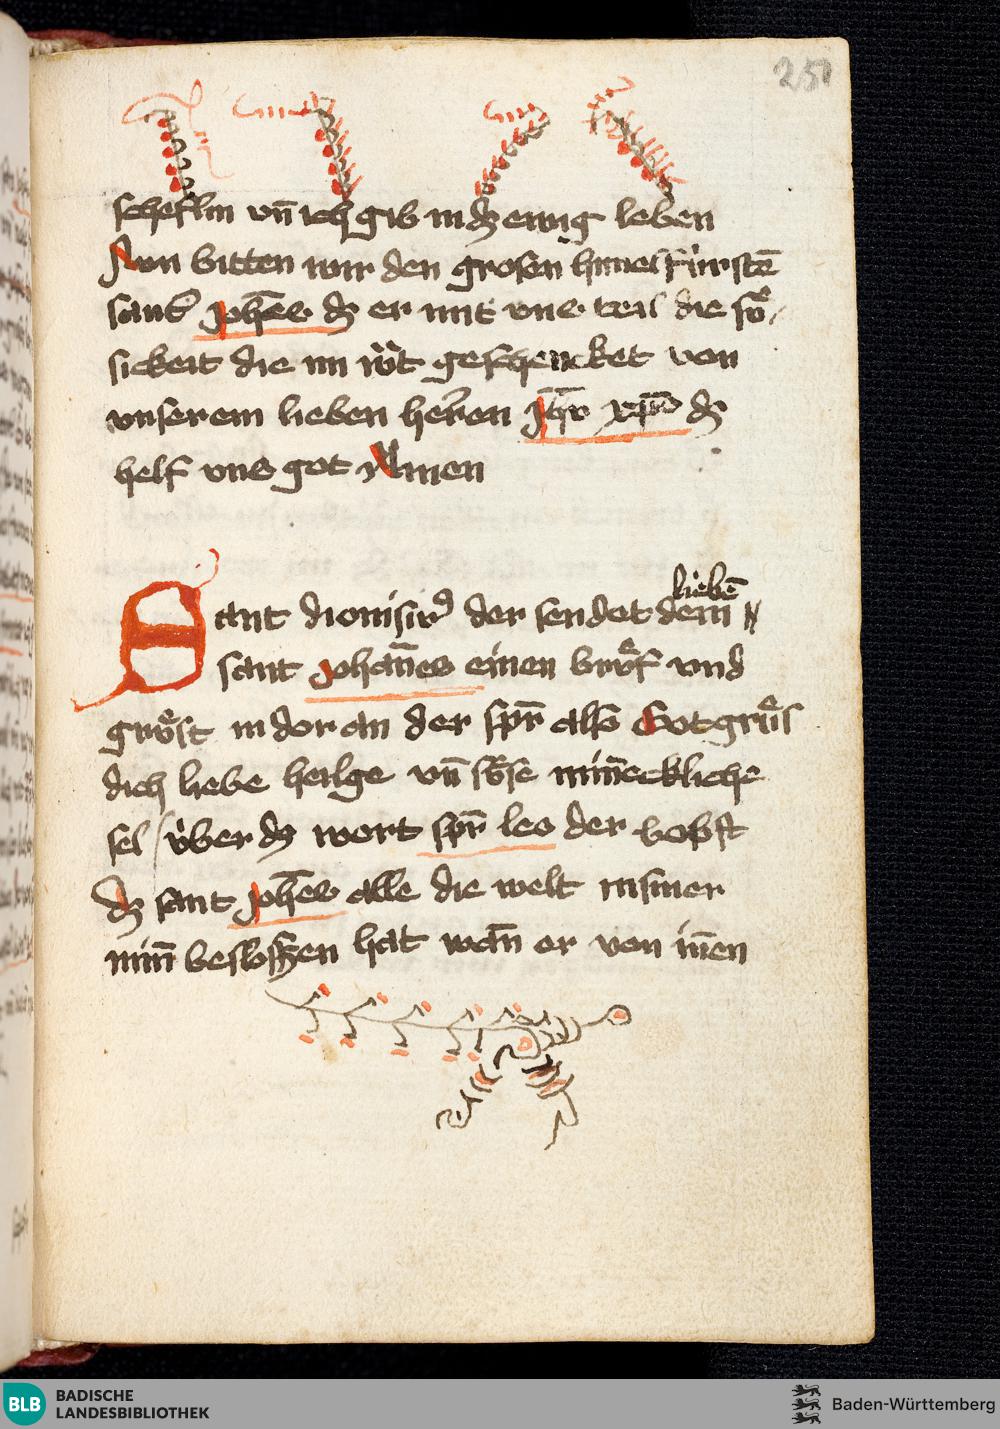 251
scheflin vn̄ ich gib in dz ewig leben
Nun bitten wir den grosen himelfúrstē
sant Joh̄es dz er mit vns teil die
sikeit die im wͦt geschencket von
vnserem lieben herren Jh̄u xp̄o dz
helf vns got Amen
Sant dionisius der sendet dem liebē
sant Johan̄es einen brieff vnd
grͤst in dor an der spr̄ also Got grͤs
dich liebe heilge vn̄ sͤse min̄eckliche
sel / v́ber dz wort spr̄ leo der bobst
dz sant Joh̄es alle die welt in siner
min̄ beslossen hat wan̄ er von im̄en
BLB
BADISCHE
LANDESBIBLIOTHEK
Baden-Württemberg